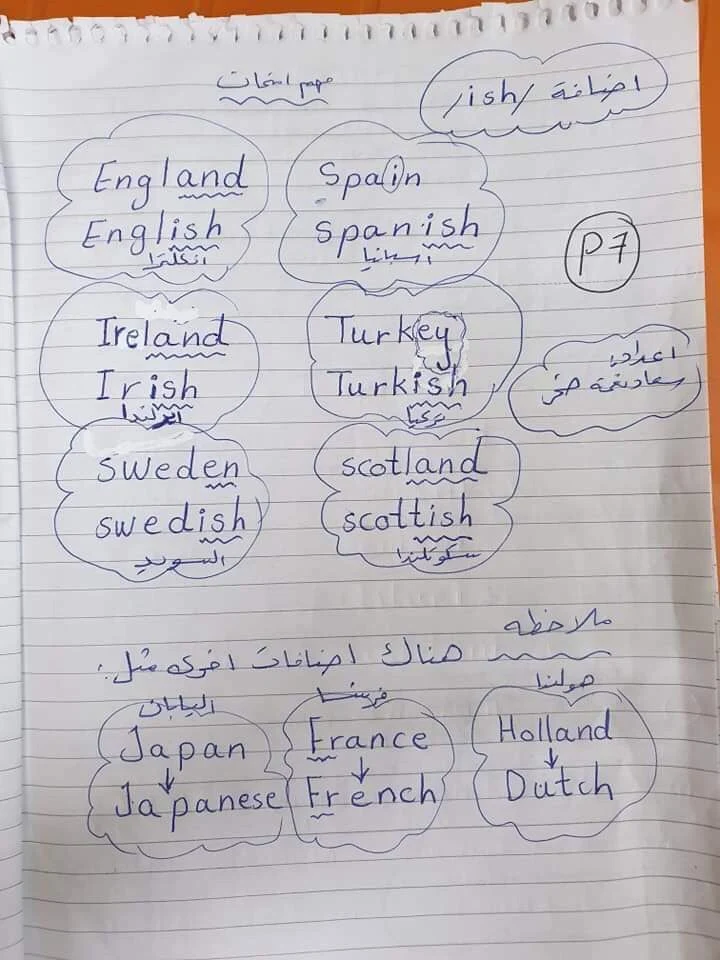 مهم امتحان
اضافة /ish/
England
English
انكلترا
Spain
Spanish
اسبانيا
P7
Ireland
Irish
ايرلندا
Turkey
Turkish
تركيا
اعداد
sweden
swedish
السويد
scotland
scottish
سكوتلندا
ملاحظه
هناك اضافات اخرى مثل:
اليابان
Japan
Japanese
فرنسا
France
French
هولندا
Holland
Dutch